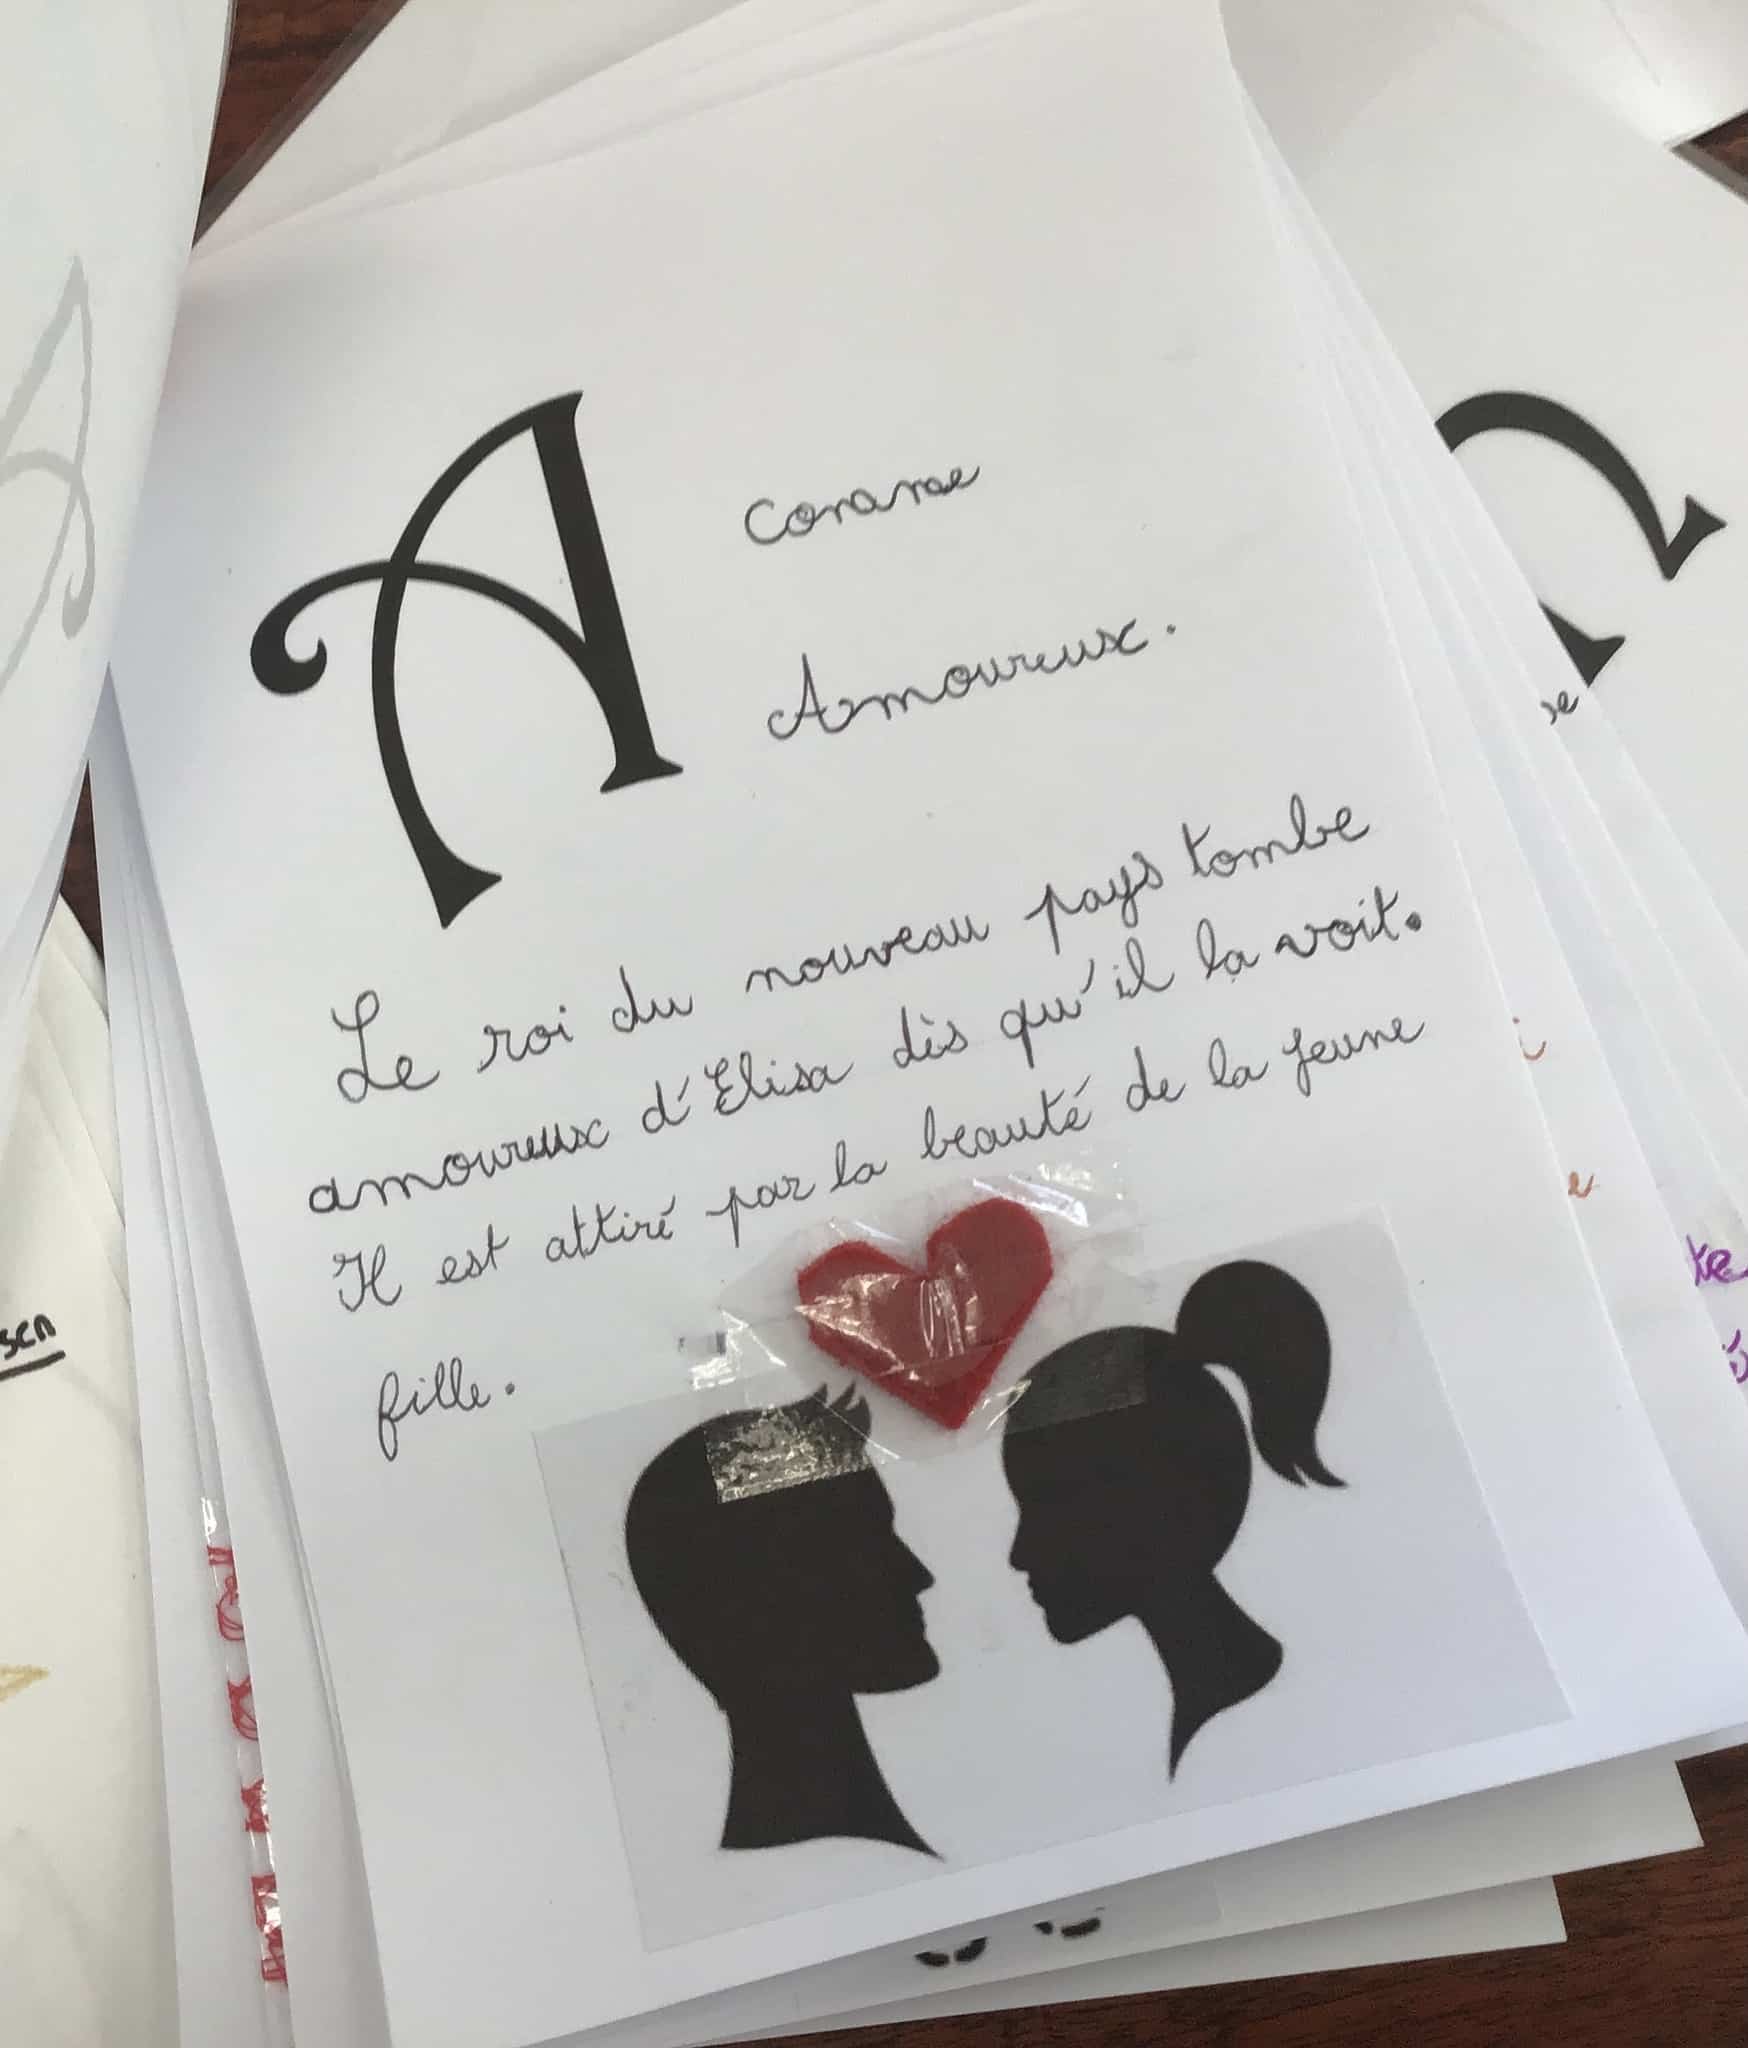 A comme
Amoureux.
Le roi du nouveau pays tombe
amoureux d'Elisa dès qu'il la voit.
Il est attiré par la beauté de la jeune
fille.